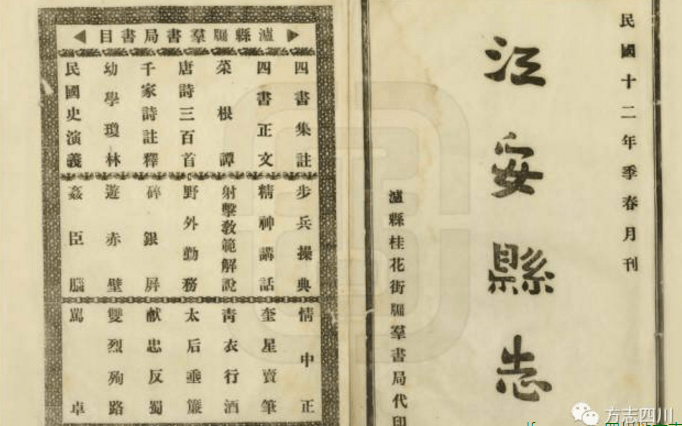 民國十二年季春月刊
江安縣志
瀘縣桂花街颿羣書局代印
瀘縣颿羣書局書目
四書集註
四書正文
菜根譚
唐詩三百首
千家詩註釋
幼學瓊林
民國史演義
步兵操典
精神講話
射擊教範解說
野外勤務
碎銀屏
遊赤壁
姦臣腦
情中正
奎星賣筆
青衣行酒
太后垂簾
獻忠反蜀
雙烈殉路
罵卓
方志四川